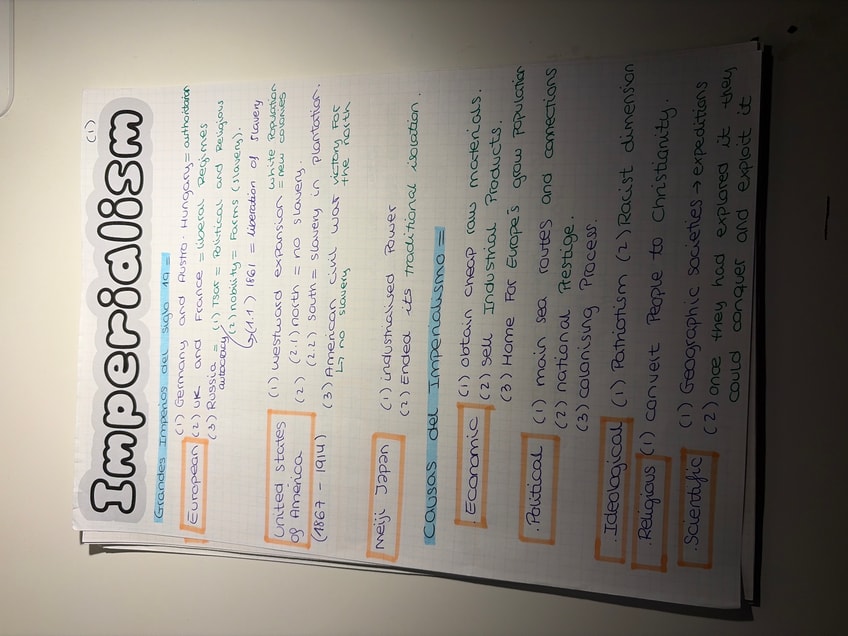 (1)
Imperialism
Grandes Imperios del siglo 19 =
European (1) Germany and Austro-Hungary =
(2) UK and France = liberal Reijimes
(3) Russia = (1) Tsar = Political and Religious
autocracy (2) nobility = Farms (slavery).
↳ (1.1) 1861 = liberation of slavery
United States of América (1867 - 1914)
(1) westward expansion white Population = new colonies
(2) (2.1) north = no slavery.
(2.2) south = slavery in plantation.
(3) American civil war victory For the north
↳ no slavery
Meiji Japan (1) industrialised Power
(2) Ended its traditional isolation.
Causas del Imperialismo =
. Economic (1) obtain cheap raw materials.
(2) sell Industrial Products.
(3) Home For Europe's grow population
. Political (1) main sea routes and connections
(2) national Prestige.
(3) colonising Process.
. Ideological (1) Patriotism (2) Racist dimension
. Religious (1) convert People to Christianity.
. Scientific (1) Geographic societies → expeditions
(2) once they had explored it they
could conquer and exploit it